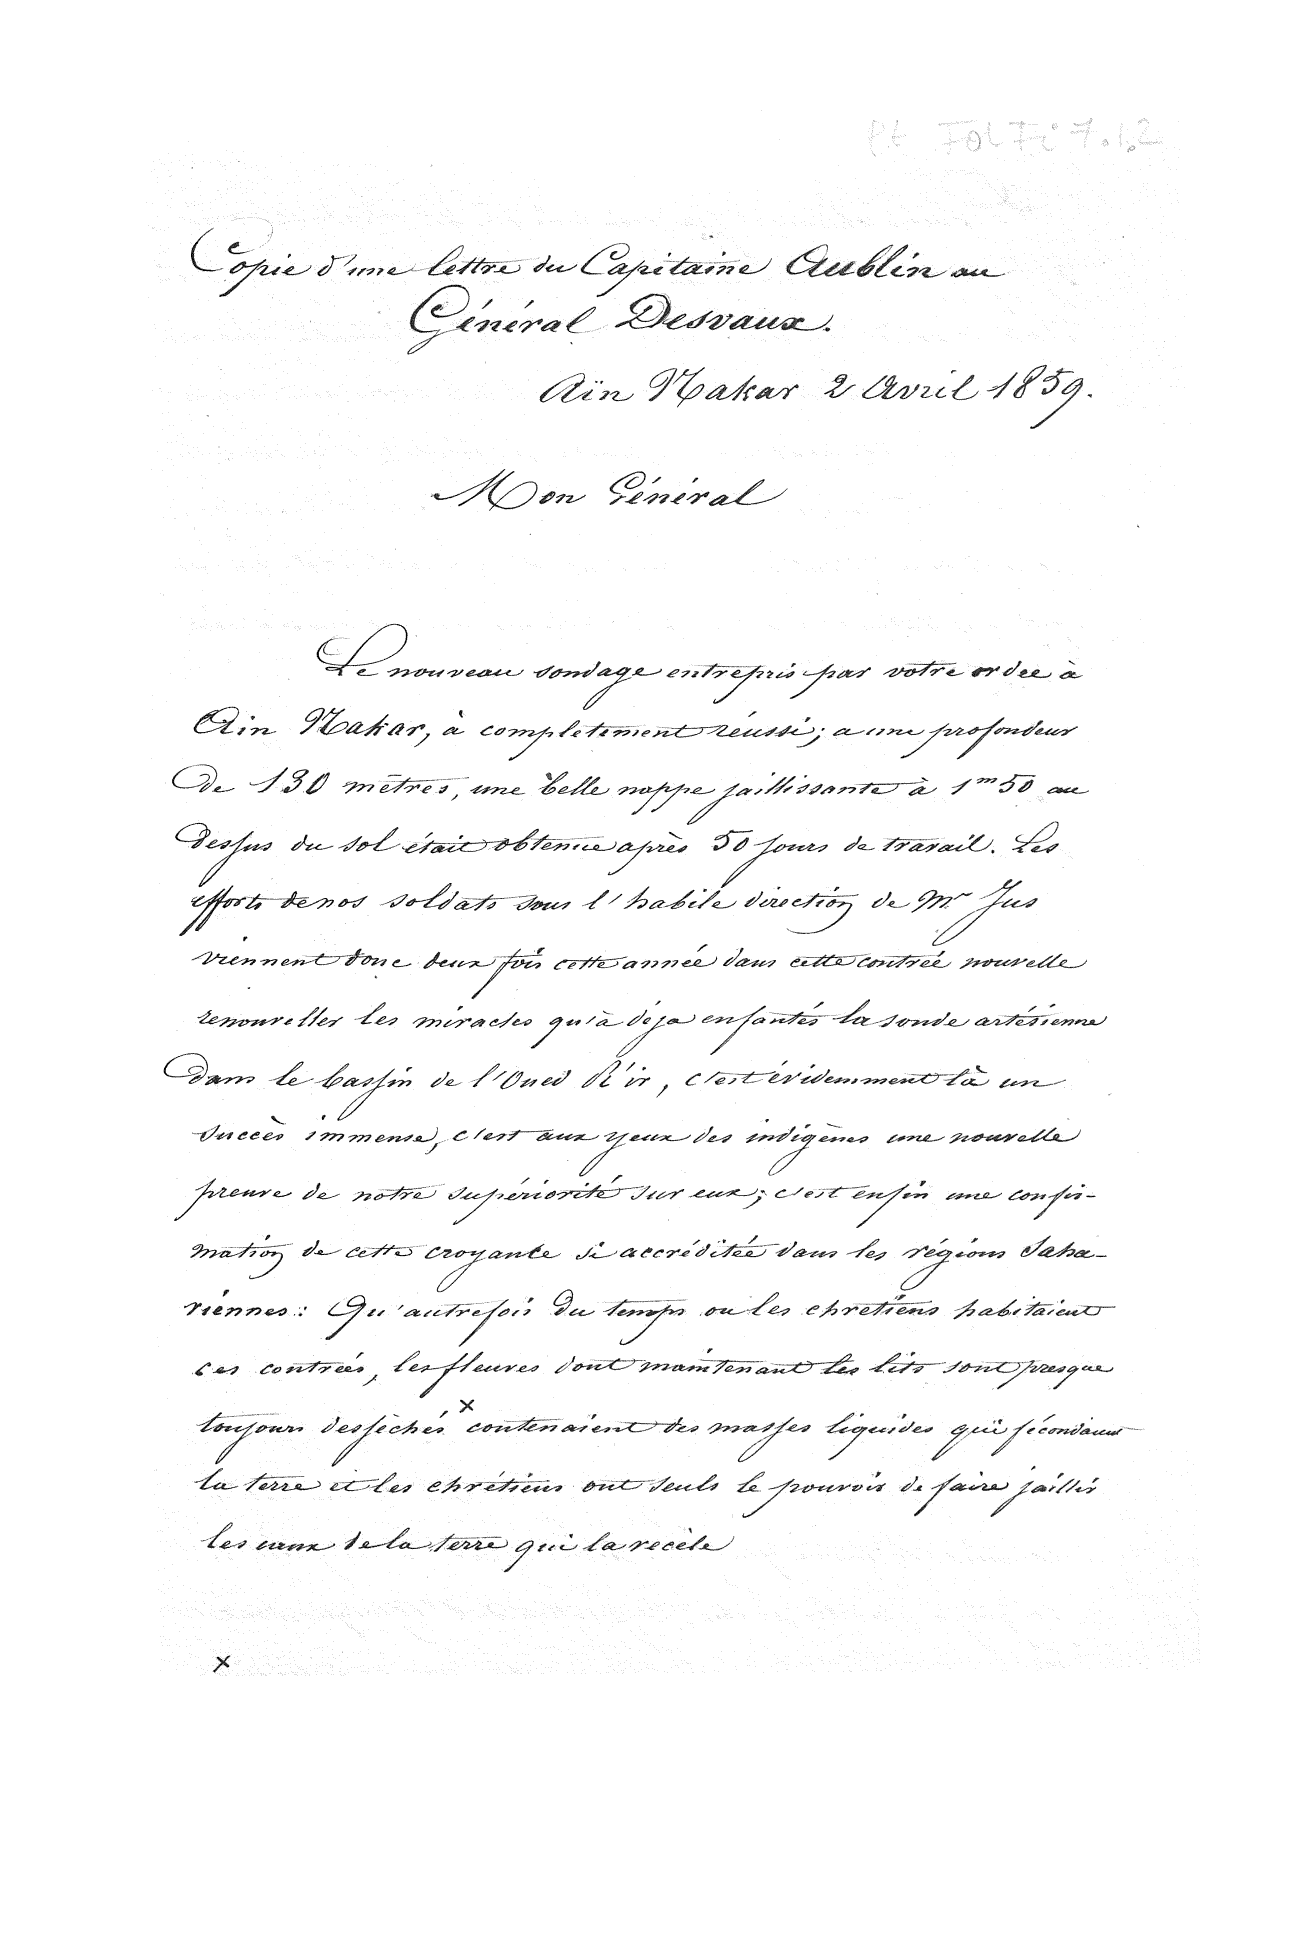 Copie d'une lettre du Capitaine Aublin au
Général Desvaux.
Aïn Nakar 2 Avril 1859.
Mon Général
Le nouveau sondage entrepris par votre ordre à
Aïn Nakar, à completement réussi; a une profondeur
de 130 mètres, une belle nappe jaillissante à 1m 50 au
dessus du sol était obtenue après 50 jours de travail. Les
efforts de nos soldats sous l'habile direction de Mr Jus
viennent donc deux fois cette année dans cette contrée nouvelle
renouveller les miracles qu'à deja enfantés la sonde artésienne
dans le bassin de l'Oued R'ir, c'est évidemment là un
succès immense, c'est aux yeux des indigènes une nouvelle
preuve de notre supériorité sur eux; c'est enfin une confir-
mation de cette croyante si accréditée dans les régions Saha-
riennes: Qu'autrefois du temps ou les chretiens habitaient
ces contrées, les fleuves dont maintenant les lits sont presque
toujours desséchés x contenaient des masses liquides qui fécondaient
la terre et les chrétiens ont seuls le pouvoir de faire jaillir
les eaux de la terre qui la recèle
x